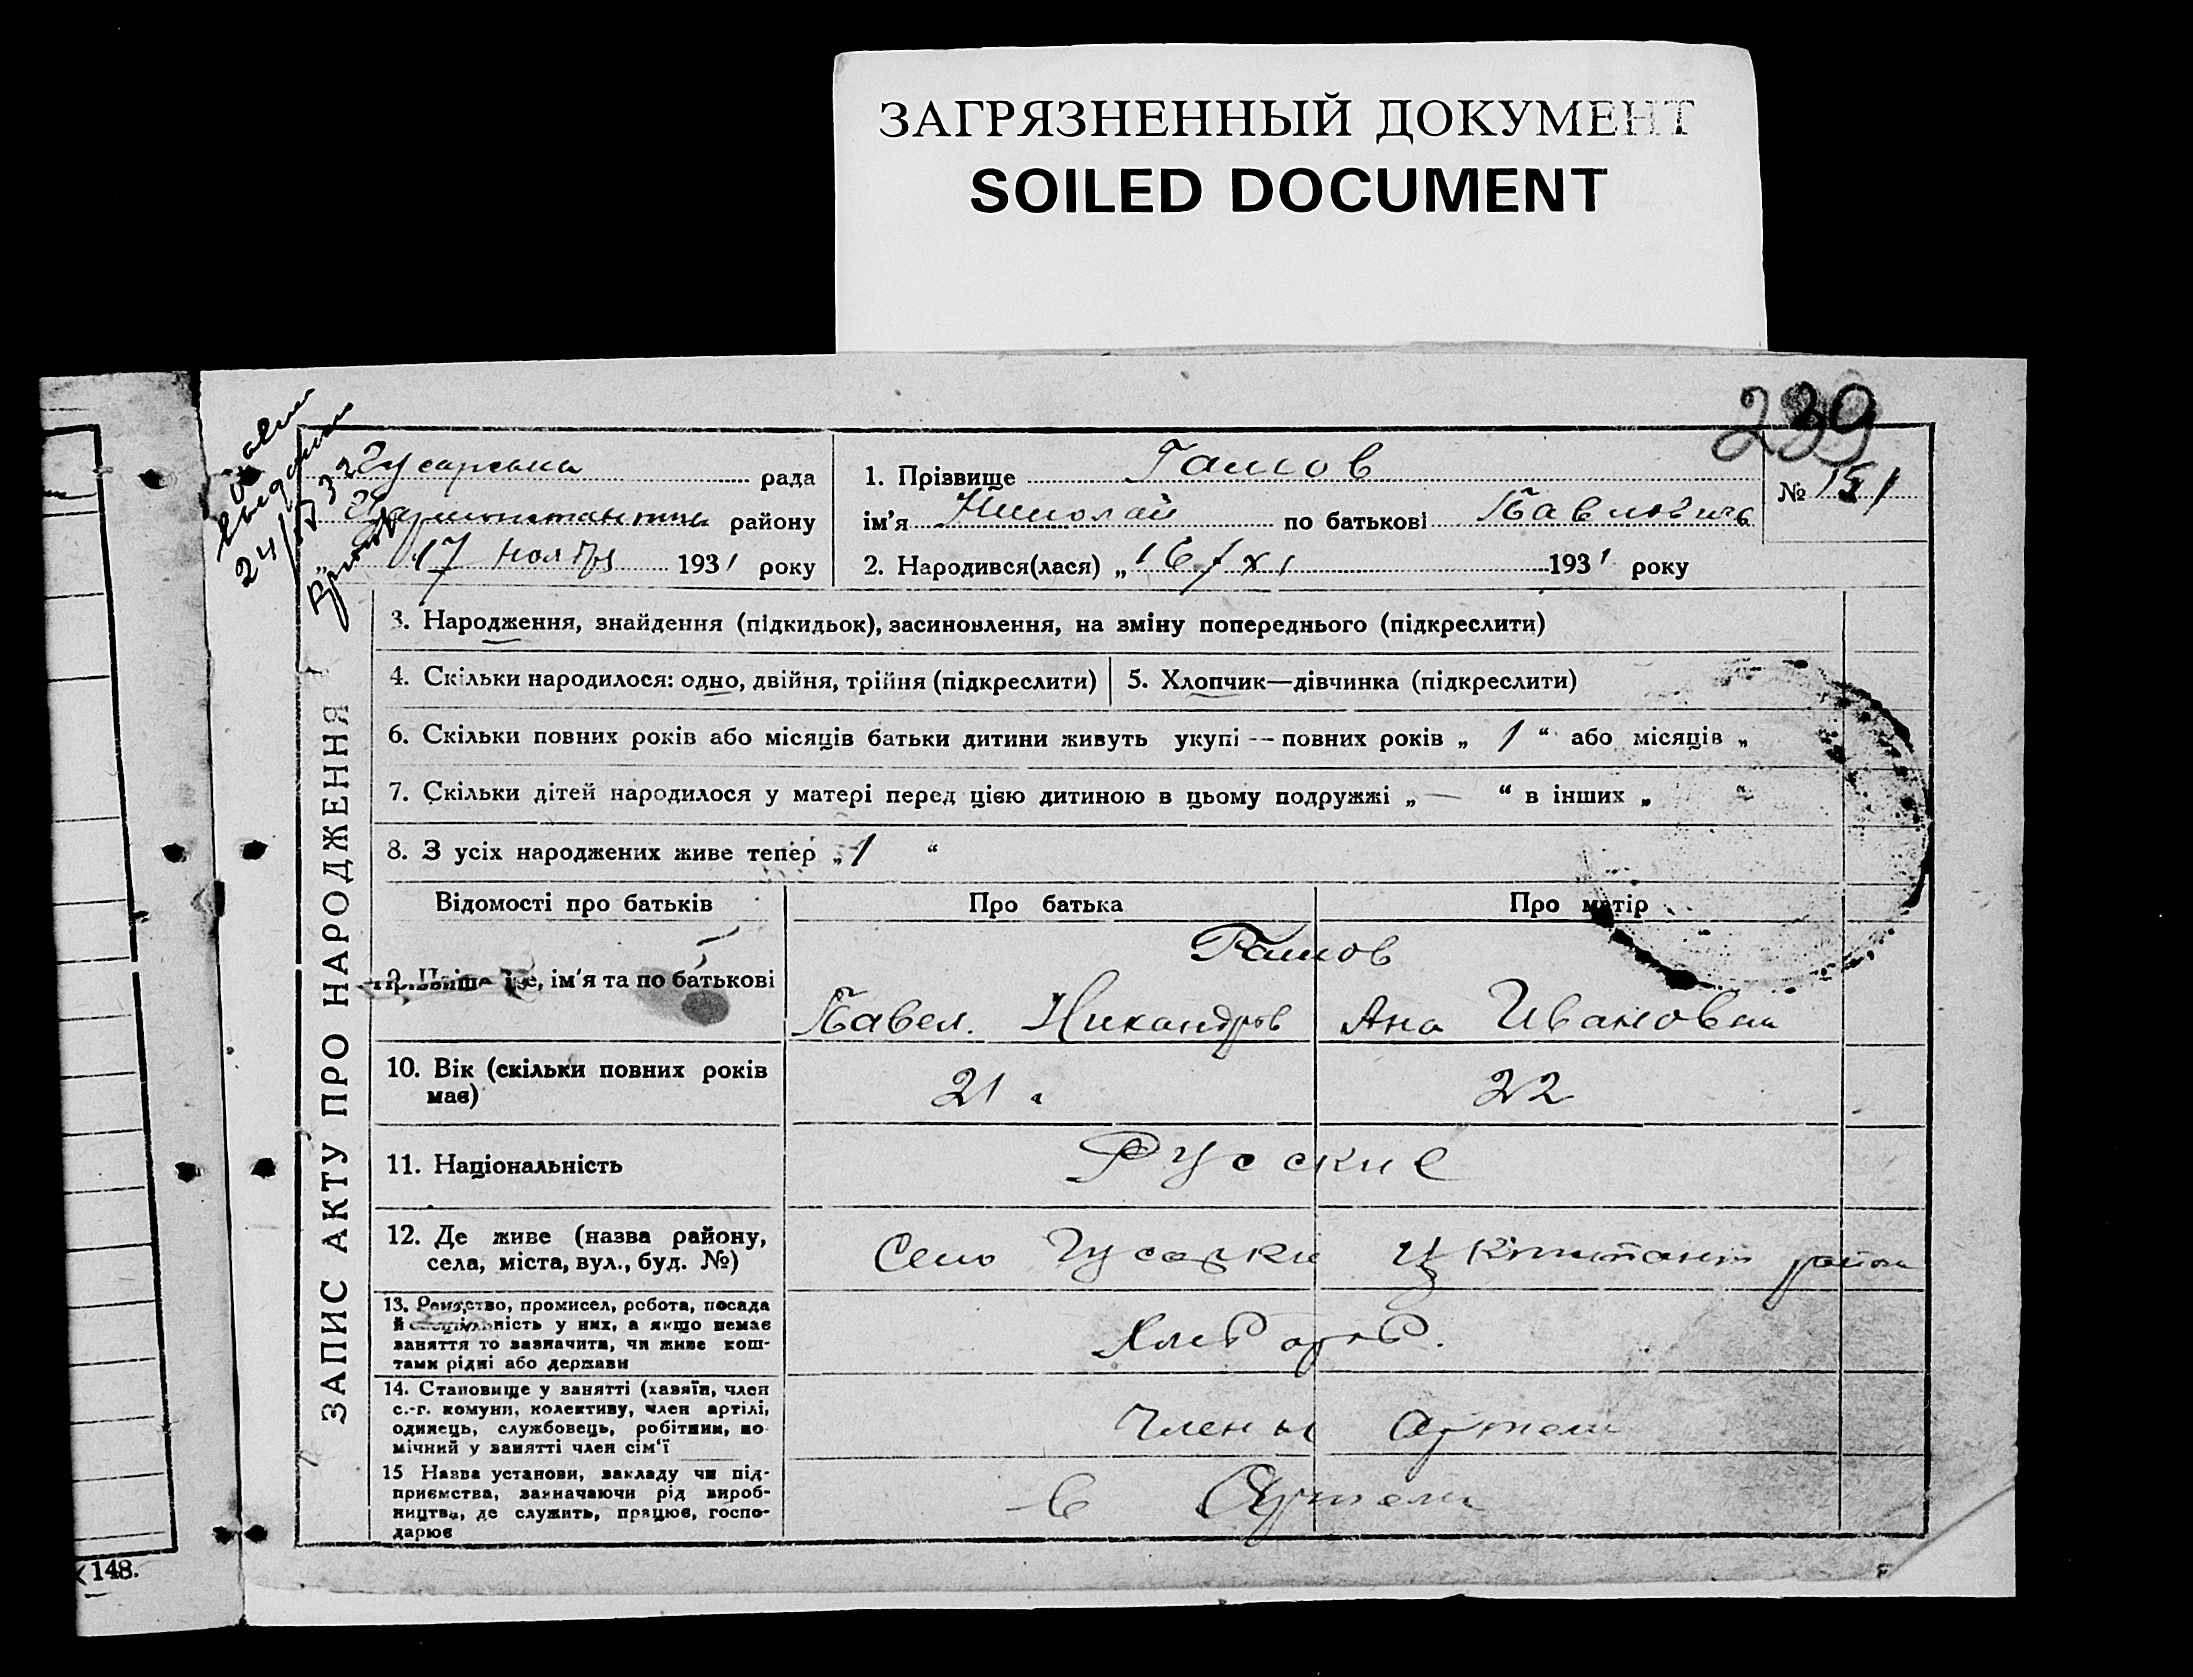 ЗАГРЯЗНЕННЫЙ ДОКУМЕНТ
SOILED DOCUMENT
239
рада
району
17 ноября 1931 року
1. Прізвище Гамов
№ 151
ім'я Николай по батькові Павлович
2. Народився(лася) „16/XI 1931 року
ЗАПИС АКТУ ПРО НАРОДЖЕННЯ
3. Народження, знайдення (підкидьок), засиновлення, на зміну попереднього (підкреслити)
4. Скільки народилося: одно, двійня, трійня (підкреслити)
5. Хлопчик—дівчинка (підкреслити)
6. Скільки повних років або місяців батьки дитини живуть укупі — повних років „ 1 “ або місяців „
7. Скільки дітей народилося у матері перед цією дитиною в цьому подружжі „ — “ в інших „ “
8. З усіх народжених живе тепер „ 1 “
Відомості про батьків
Про батька
Про матір
Гамов
9. Прізвище, ім'я та по батькові
Павел. Никандров
Ана Ивановна
10. Вік (скільки повних років
має)
21
22
11. Національність
Русские
12. Де живе (назва району,
села, міста, вул., буд. №)
Село Гусарки
район
13. Ремество, промисел, робота, посада
й спеціяльність у них, а якщо немає
заняття то зазначити, чи живе кош-
тами рідні або держави
14. Становище у занятті (хазяїн, член
с.-г. комуни, колективу, член артілі,
одинець, службовець, робітник, по-
мічний у занятті член сім'ї
Члены Артели
15 Назва установи, закладу чи під-
приємства, зазначаючи рід вироб-
ництва, де служить, працює, госпо-
дарює
в Артели
148.